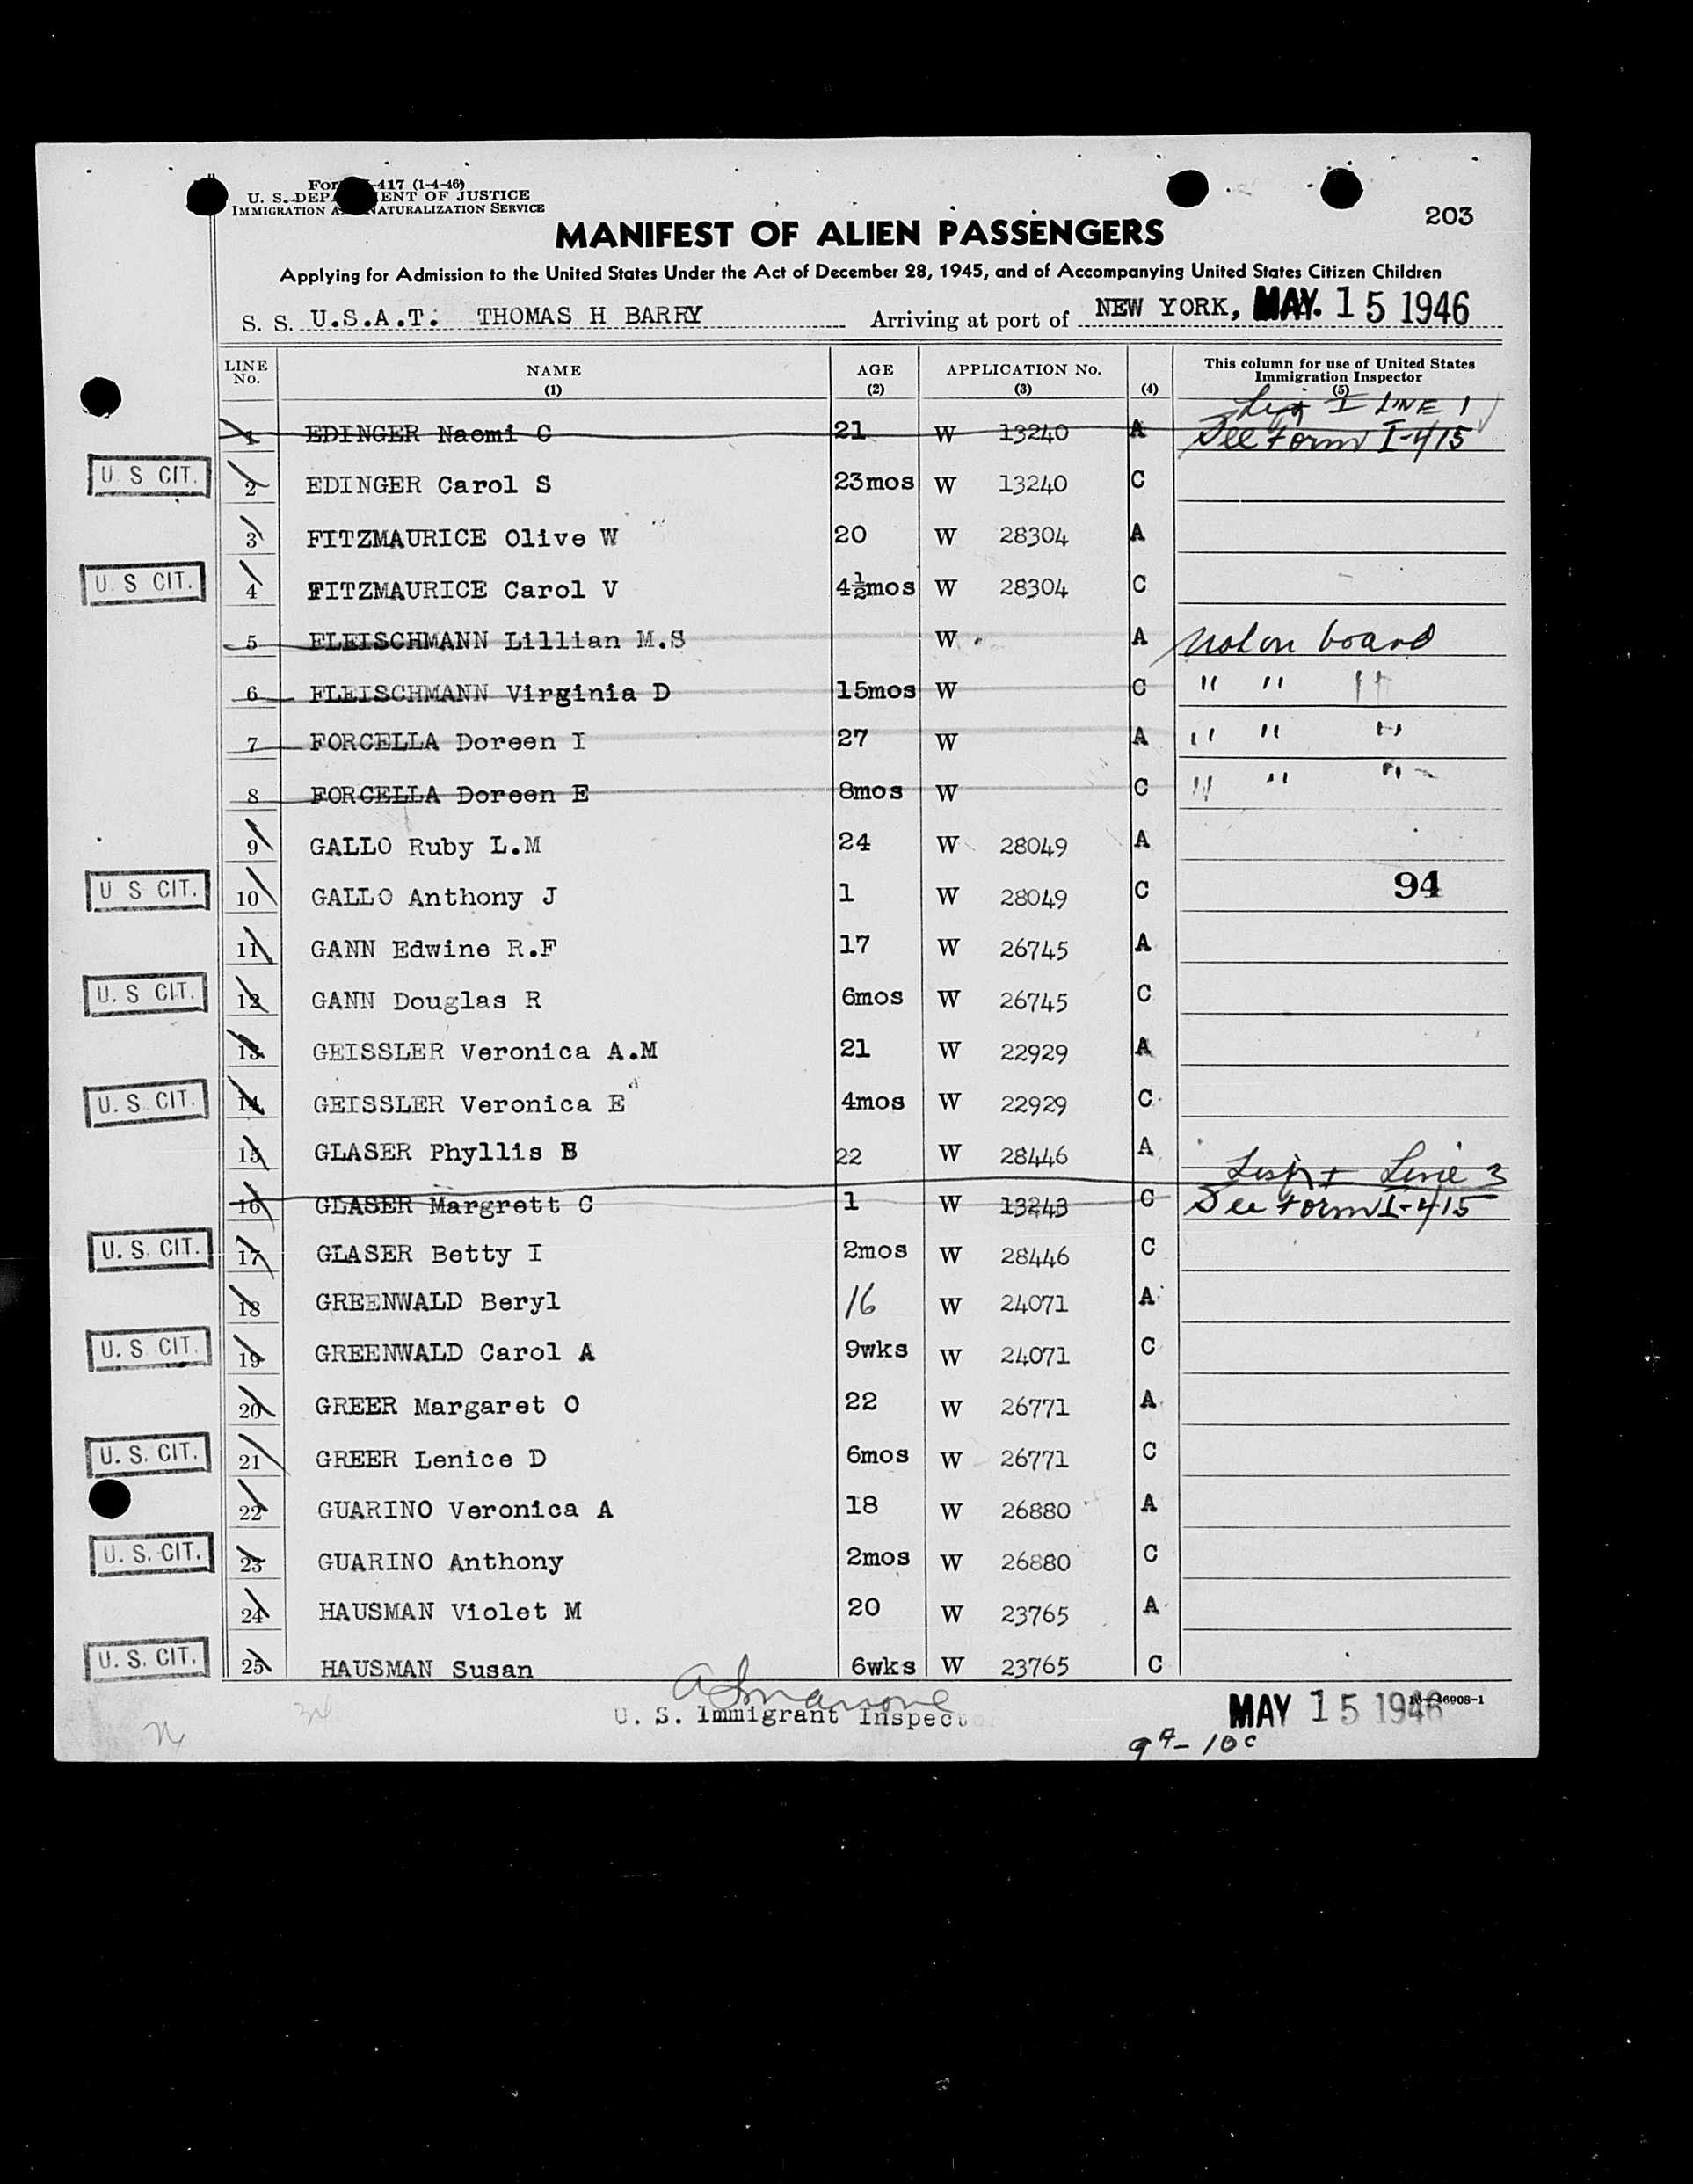 Form I-417 (1-4-46)
U. S. DEPARTMENT OF JUSTICE
IMMIGRATION AND NATURALIZATION SERVICE
203
MANIFEST OF ALIEN PASSENGERS
Applying for Admission to the United States Under the Act of December 28, 1945, and of Accompanying United States Citizen Children
S. S. U.S.A.T. THOMAS H BARRY Arriving at port of NEW YORK, MAY. 15 1946
LINE No. NAME (1) AGE (2) APPLICATION No. (3) (4) This column for use of United States Immigration Inspector (5)
LINE 1
1 EDINGER Naomi C 21 W 13240 A See Form I-415
U S CIT. 2 EDINGER Carol S 23mos W 13240 C
3 FITZMAURICE Olive W 20 W 28304 A
U. S CIT. 4 FITZMAURICE Carol V 4½mos W 28304 C
5 FLEISCHMANN Lillian M.S W A Not on board
6 FLEISCHMANN Virginia D 15mos W C " " "
7 FORCELLA Doreen I 27 W A " " "
8 FORCELLA Doreen E 8mos W C " " "
9 GALLO Ruby L.M 24 W 28049 A
U S CIT. 10 GALLO Anthony J 1 W 28049 C 94
11 GANN Edwine R.F 17 W 26745 A
U. S CIT. 12 GANN Douglas R 6mos W 26745 C
13 GEISSLER Veronica A.M 21 W 22929 A
U. S. CIT. 14 GEISSLER Veronica E 4mos W 22929 C
15 GLASER Phyllis B 22 W 28446 A
Line 3
16 GLASER Margrett C 1 W 13243 C See Form I-415
U. S. CIT. 17 GLASER Betty I 2mos W 28446 C
18 GREENWALD Beryl 16 W 24071 A
U. S CIT. 19 GREENWALD Carol A 9wks W 24071 C
20 GREER Margaret O 22 W 26771 A
U. S. CIT. 21 GREER Lenice D 6mos W 26771 C
22 GUARINO Veronica A 18 W 26880 A
U. S. CIT. 23 GUARINO Anthony 2mos W 26880 C
24 HAUSMAN Violet M 20 W 23765 A
U. S. CIT. 25 HAUSMAN Susan 6wks W 23765 C
U. S. Immigrant Inspector
MAY 15 1946
16-46908-1
9A-10C